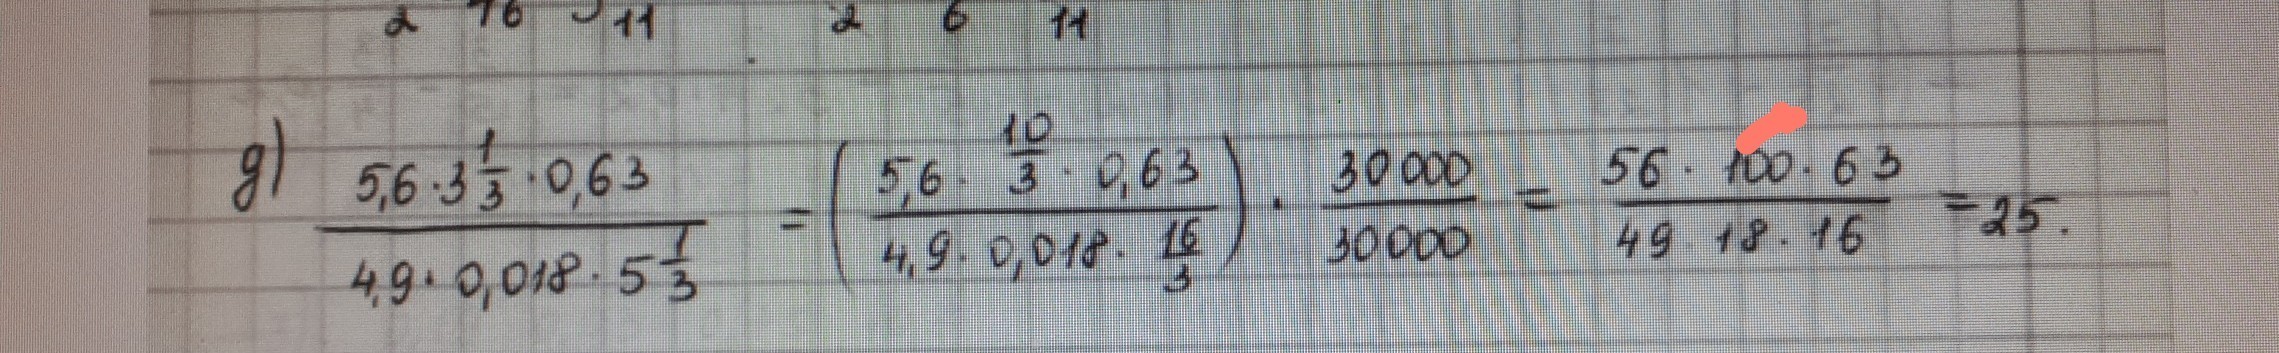 2 16 11 2 6 11
д) (5,6 · 3 1/3 · 0,63)/(4,9 · 0,018 · 5 1/3) = ((5,6 · 10/3 · 0,63)/(4,9 · 0,018 · 16/3)) · 30000/30000 = (56 · 100 · 63)/(49 18 · 16) = 25.